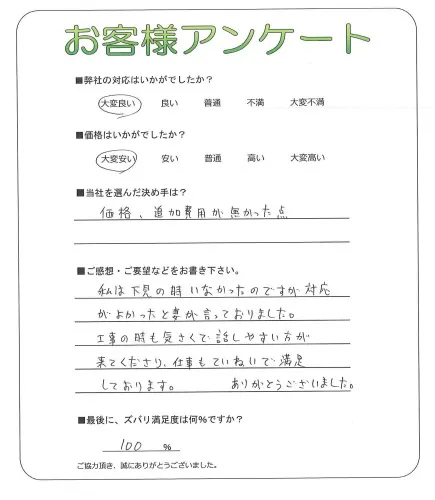 お客様アンケート
■弊社の対応はいかがでしたか？
大変良い 良い 普通 不満 大変不満
■価格はいかがでしたか？
大変安い 安い 普通 高い 大変高い
■当社を選んだ決め手は？
価格、追加費用が無かった点
■ご感想・ご要望などをお書き下さい。
私は下見の時いなかったのですが対応
がよかったと妻が言っておりました。
工事の時も気さくで話しやすい方が
来てくださり、仕事もていねいで満足
しております。 ありがとうございました。
■最後に、ズバリ満足度は何％ですか？
100 %
ご協力頂き、誠にありがとうございました。